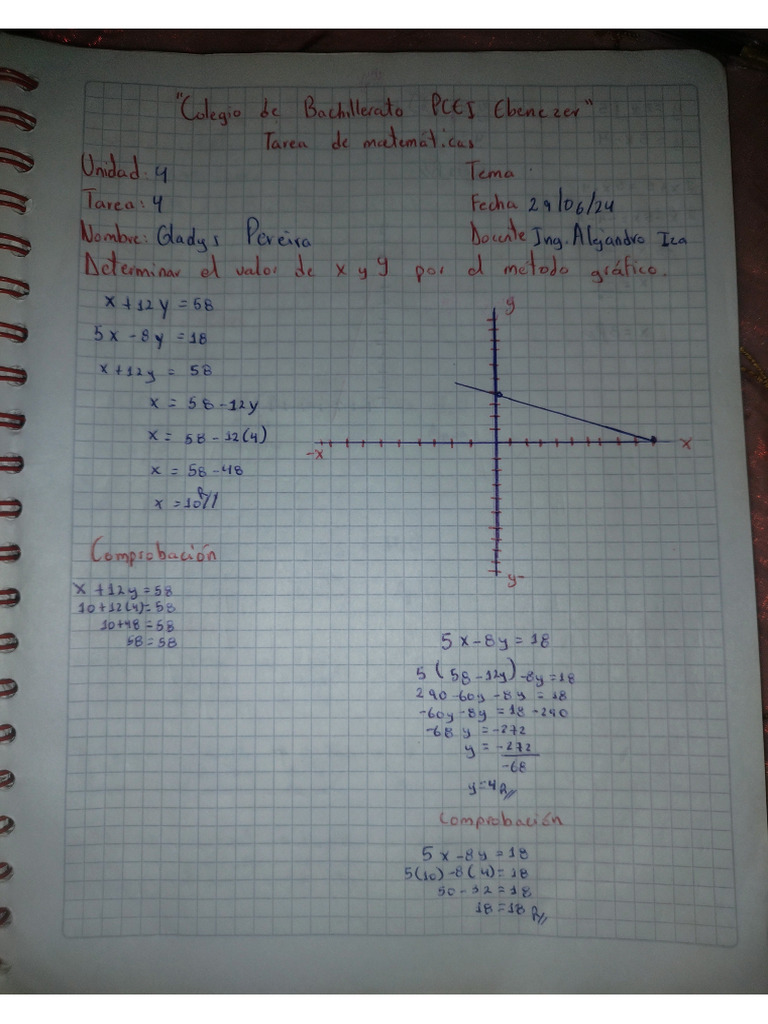 "Colegio de Bachillerato PCEI Ebenezer"
Tarea de matemáticas
Unidad: 4
Tema:
Tarea: 4
Fecha 29/06/24
Nombre: Gladys Pereira
Docente Ing. Alejandro Iza
Determinar el valor de x y y por el metodo gráfico.
x + 12y = 58
5x - 8y = 18
x + 12y = 58
x = 58 - 12y
x = 58 - 12(4)
x = 58 - 48
x = 10 R//
y
-x
x
y-
Comprobación
x + 12y = 58
10 + 12(4) = 58
10 + 48 = 58
58 = 58
5x - 8y = 18
5(58 - 12y) - 8y = 18
290 - 60y - 8y = 18
-60y - 8y = 18 - 290
-68y = -272
y = -272
-68
y = 4 R//
Comprobación
5x - 8y = 18
5(10) - 8(4) = 18
50 - 32 = 18
18 = 18 R//